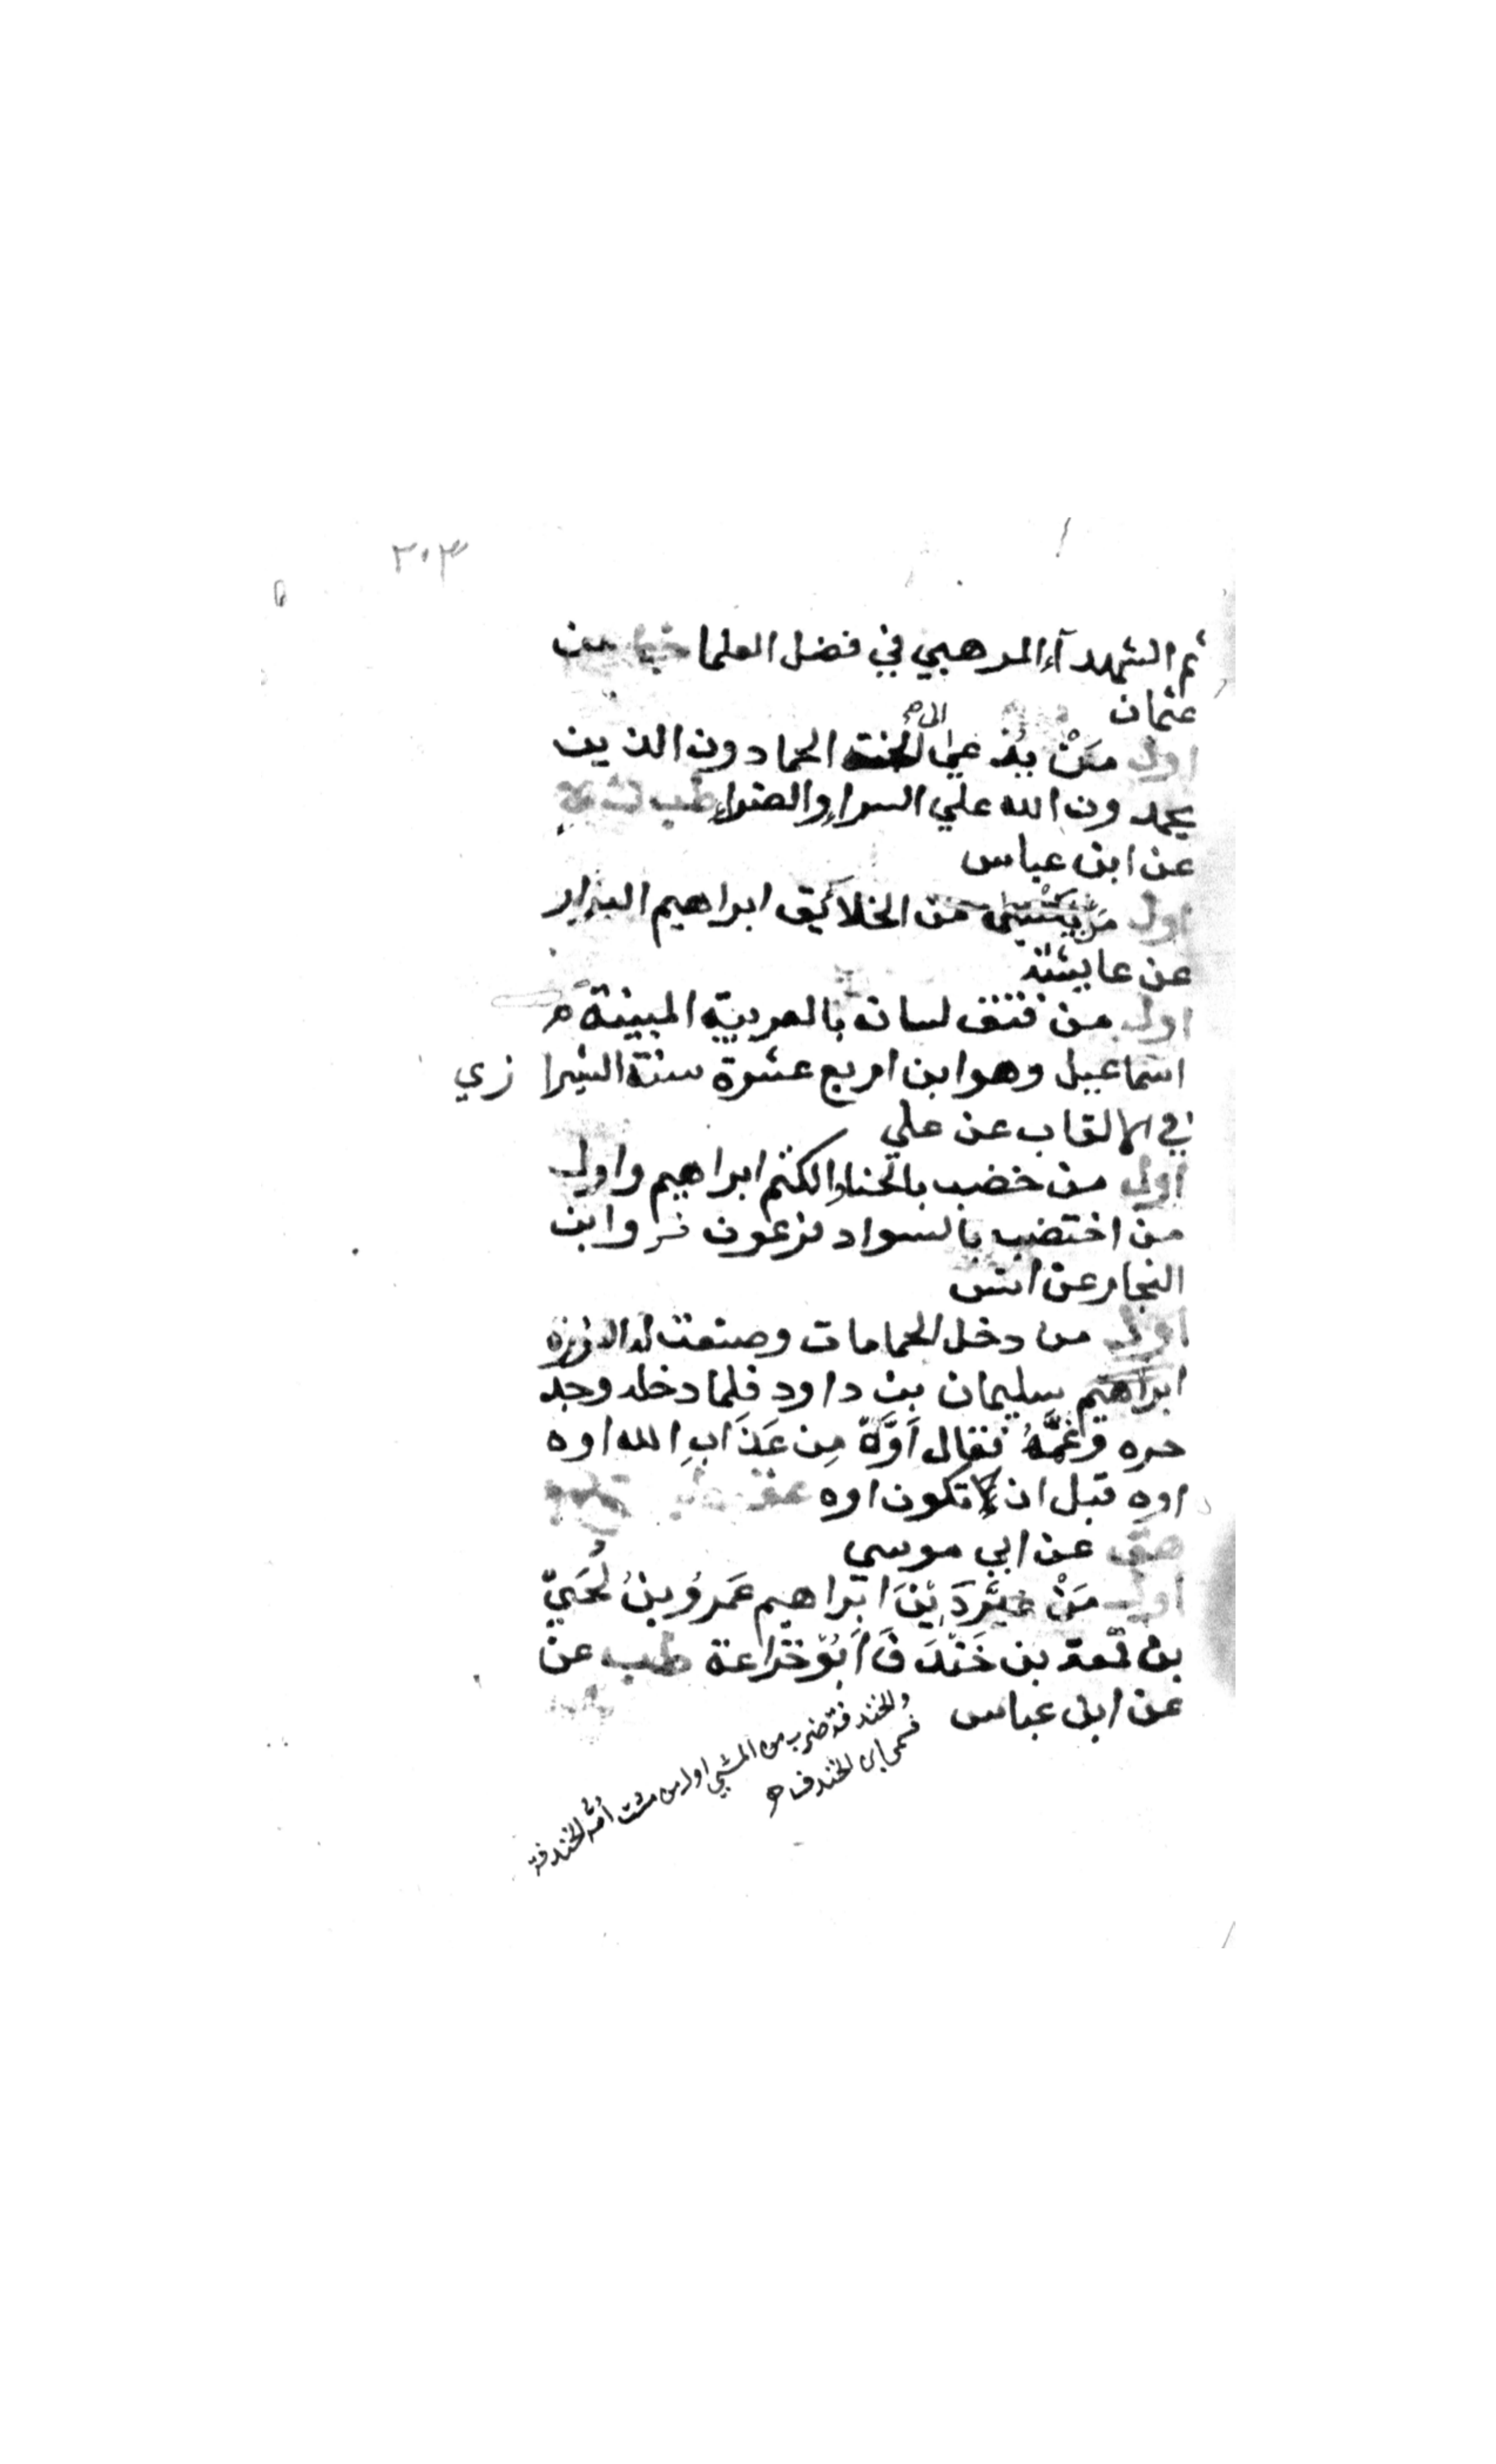 ٣٠٣
ثم الشهدآء المرهبي في فضل العلما خط عن
عثمان
اول مَنْ يُدْعي الى الجنة الحمادون الذين
يحمدون الله علي السراء والضراء طب ك
عن ابن عباس
اول من يكسى من الخلائق ابراهيم البزار
عن عايشة
اول من فتق لسانه بالعربية المبينة
اسماعيل وهو ابن اربع عشرة سنة الشيرازي
في الالقاب عن علي
اول من خضب بالحناء والكتم ابراهيم واول
من اختضب بالسواد فرعون فر وابن
النجار عن انس
اول من دخل الحمامات وصنعت له النورة
ابراهيم سليمان بن داود فلما دخله وجد
حره وَغَمَّهُ فقال اَوَّهْ مِن عَذَابِ الله اوه
اوه قبل ان لا تكون اوه عق طب
هق عن ابي موسي
اول مَنْ غيَّرَ دَِيْنَ ابراهيم عَمرُو بنُ لُحَيّ
بن قمعة بن خَنْدَفَ اَبُوْ خزاعة طب عن
عن ابن عباس
والخندفة ضرب من المشي اول من مشت أمه الخندفة
فسمي بابن الخندف